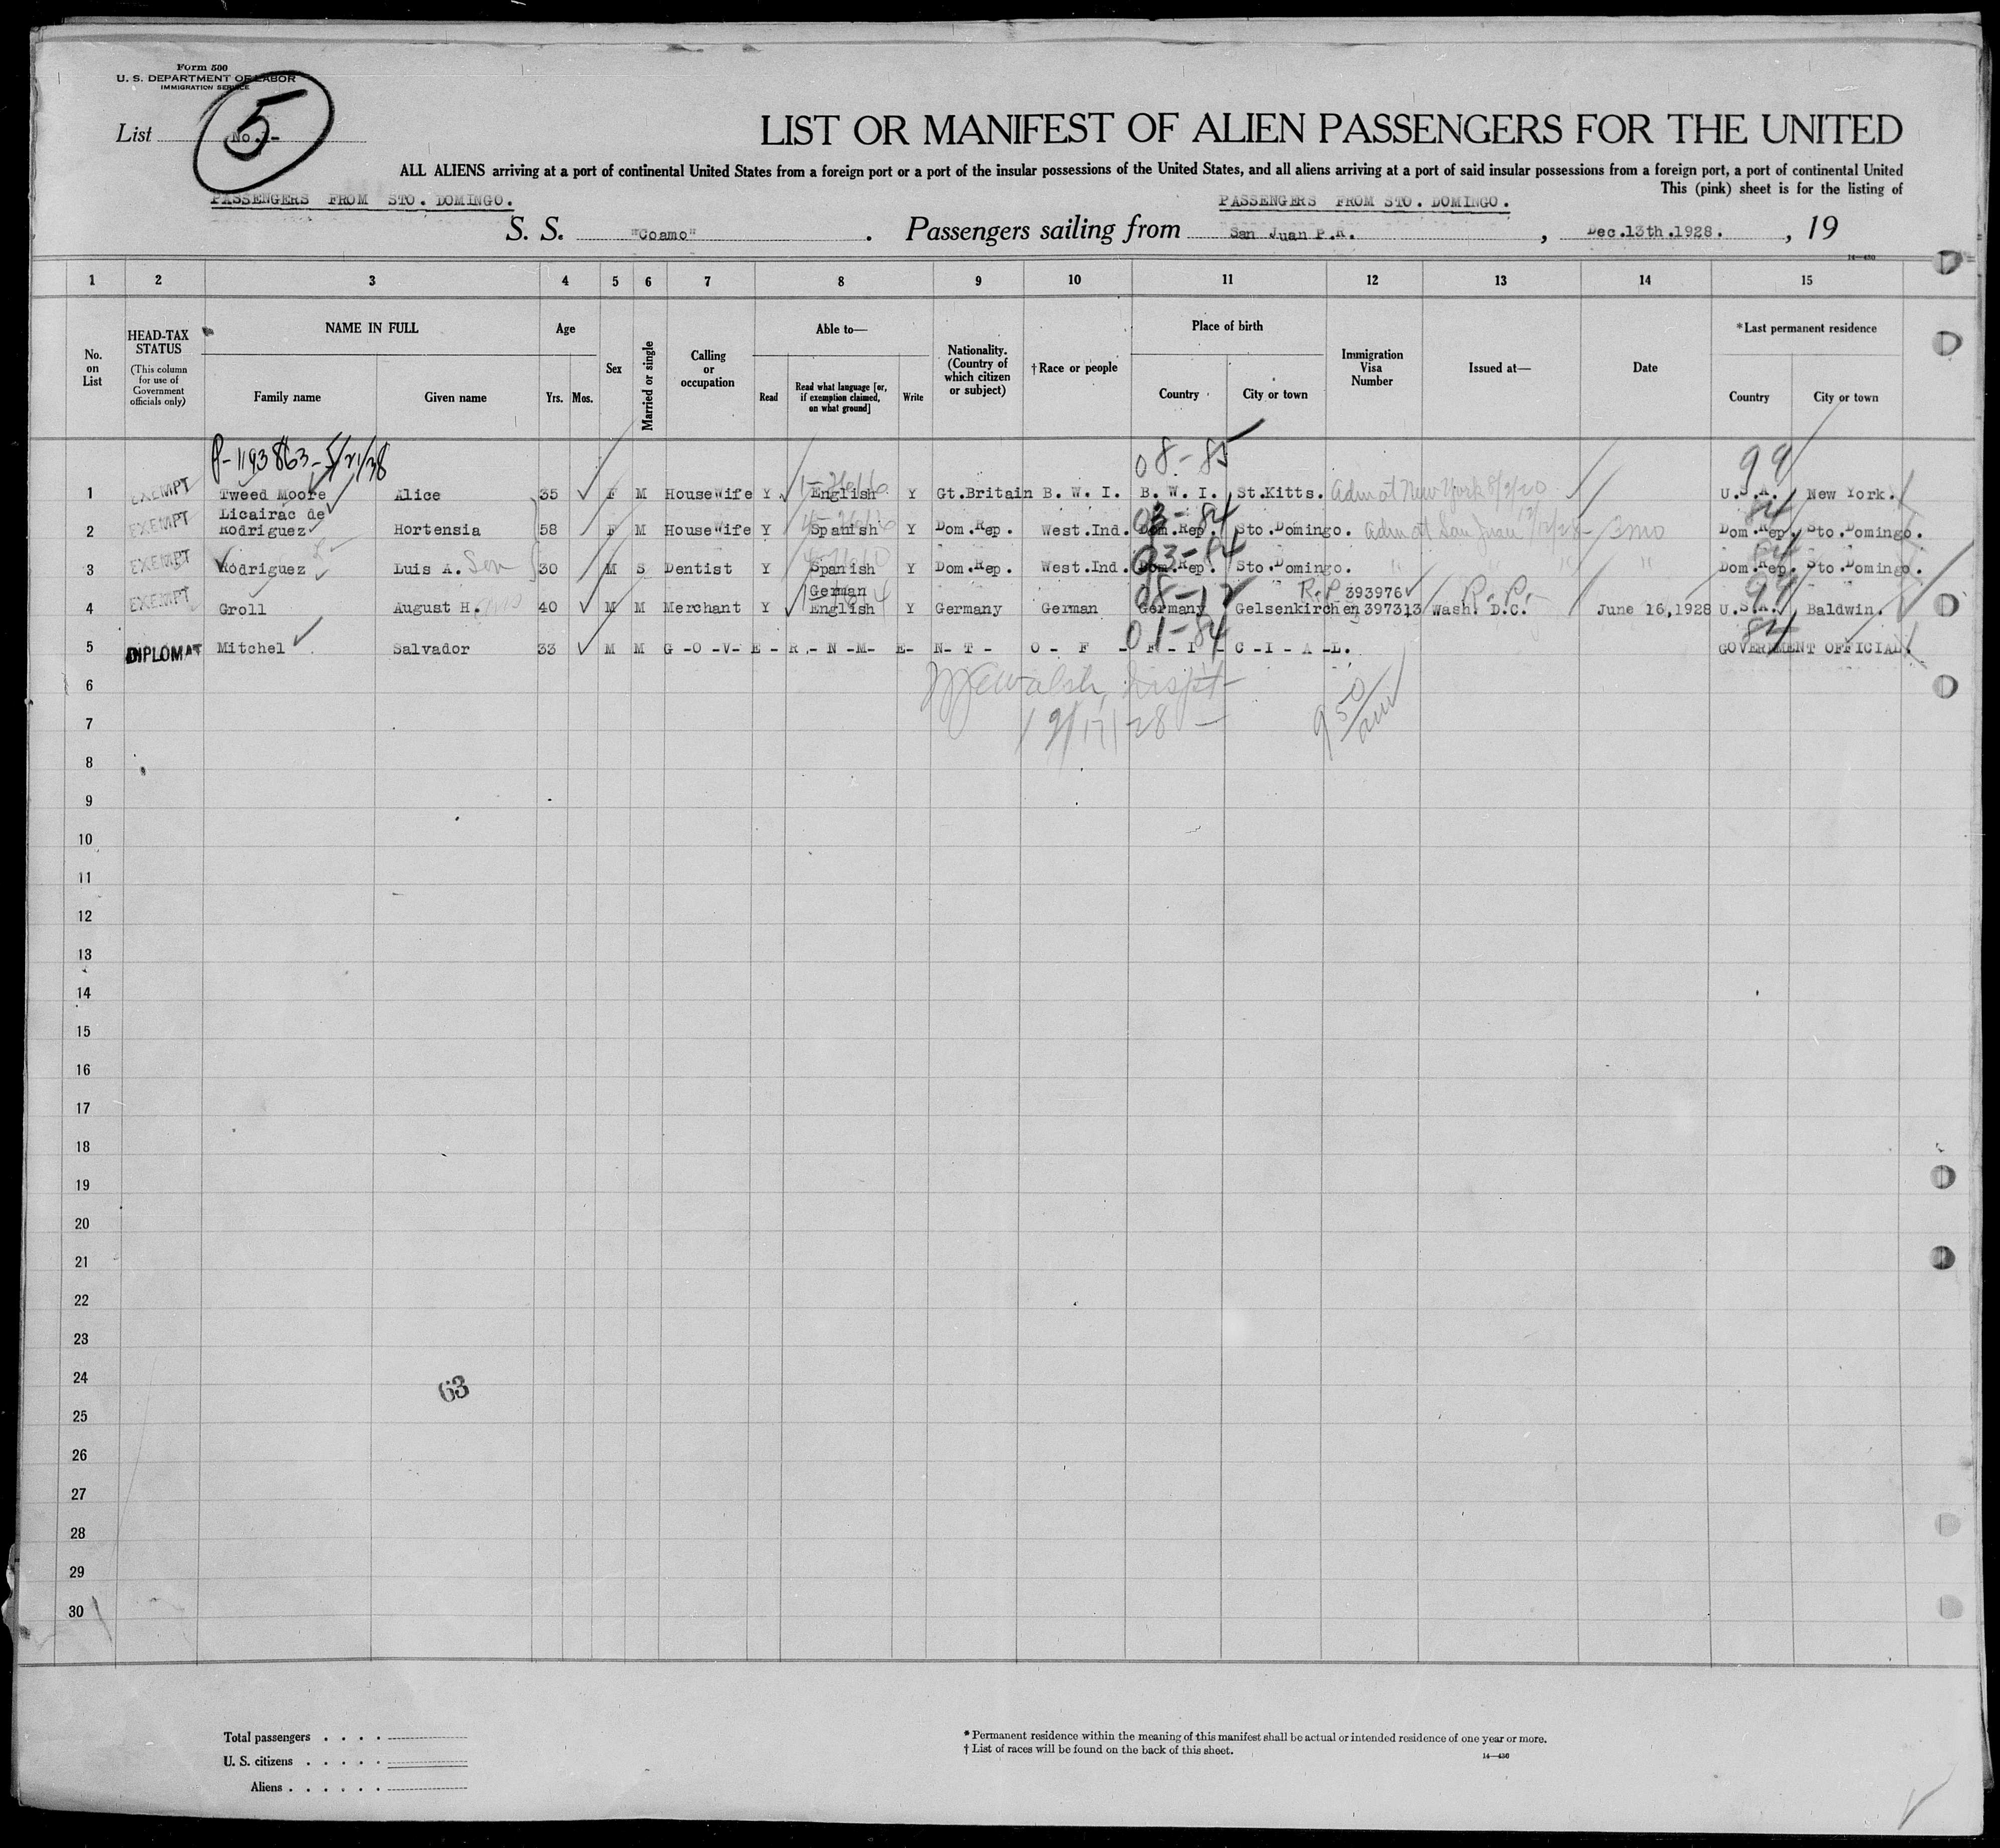 Form 500
U. S. DEPARTMENT OF LABOR
IMMIGRATION SERVICE
5
List No.
LIST OR MANIFEST OF ALIEN PASSENGERS FOR THE UNITED
ALL ALIENS arriving at a port of continental United States from a foreign port or a port of the insular possessions of the United States, and all aliens arriving at a port of said insular possessions from a foreign port, a port of continental United
This (pink) sheet is for the listing of
PASSENGERS FROM STO. DOMINGO. PASSENGERS FROM STO. DOMINGO.
S. S. "Coamo" . Passengers sailing from San Juan P.R. , Dec.13th.1928. , 19
14—430
1 2 3 4 5 6 7 8 9 10 11 12 13 14 15
No. on List
HEAD-TAX STATUS
(This column for use of Government officials only)
NAME IN FULL
Family name
Given name
Age
Yrs. Mos.
Sex
Married or single
Calling or occupation
Able to—
Read
Read what language [or, if exemption claimed, on what ground]
Write
Nationality. (Country of which citizen or subject)
†Race or people
Place of birth
Country
City or town
Immigration Visa Number
Issued at—
Date
*Last permanent residence
Country
City or town
P-1193863-5/21/38 08-85 99
1 EXEMPT Tweed Moore Alice 35 F M HouseWife Y English Y Gt.Britain B. W. I. B. W. I. St.Kitts. Adm at New York 8/9/20 U.S.A. New York.
Licairac de 03-84 84
2 EXEMPT Rodriguez Hortensia 58 F M HouseWife Y Spanish Y Dom.Rep. West.Ind. Dom.Rep. Sto.Domingo. Adm at San Juan 12/12/28- 3mo Dom.Rep. Sto.Domingo.
03-84 84
3 EXEMPT Rodriguez Luis A. Son 30 M S Dentist Y Spanish Y Dom.Rep. West.Ind. Dom.Rep. Sto.Domingo. " " " " Dom.Rep. Sto.Domingo.
German 08-12 R.P 393976 R.P. 99
4 EXEMPT Groll August H. 40 M M Merchant Y English Y Germany German Germany Gelsenkirchen 397313 Wash. D.C. June 16,1928 U.S.A. Baldwin.
01-84 84
5 DIPLOMAT Mitchel Salvador 33 M M G-O-V-E-R-N-M-E-N-T- O-F-F-I-C-I-A-L. GOVERNMENT OFFICIAL.
6 Walsh, Inspt
7 12/17/28 - 9 50/am
8
9
10
11
12
13
14
15
16
17
18
19
20
21
22
23
24 63
25
26
27
28
29
30
Total passengers . . . .
U. S. citizens . . . . .
Aliens . . . . . .
* Permanent residence within the meaning of this manifest shall be actual or intended residence of one year or more.
† List of races will be found on the back of this sheet. 14—430